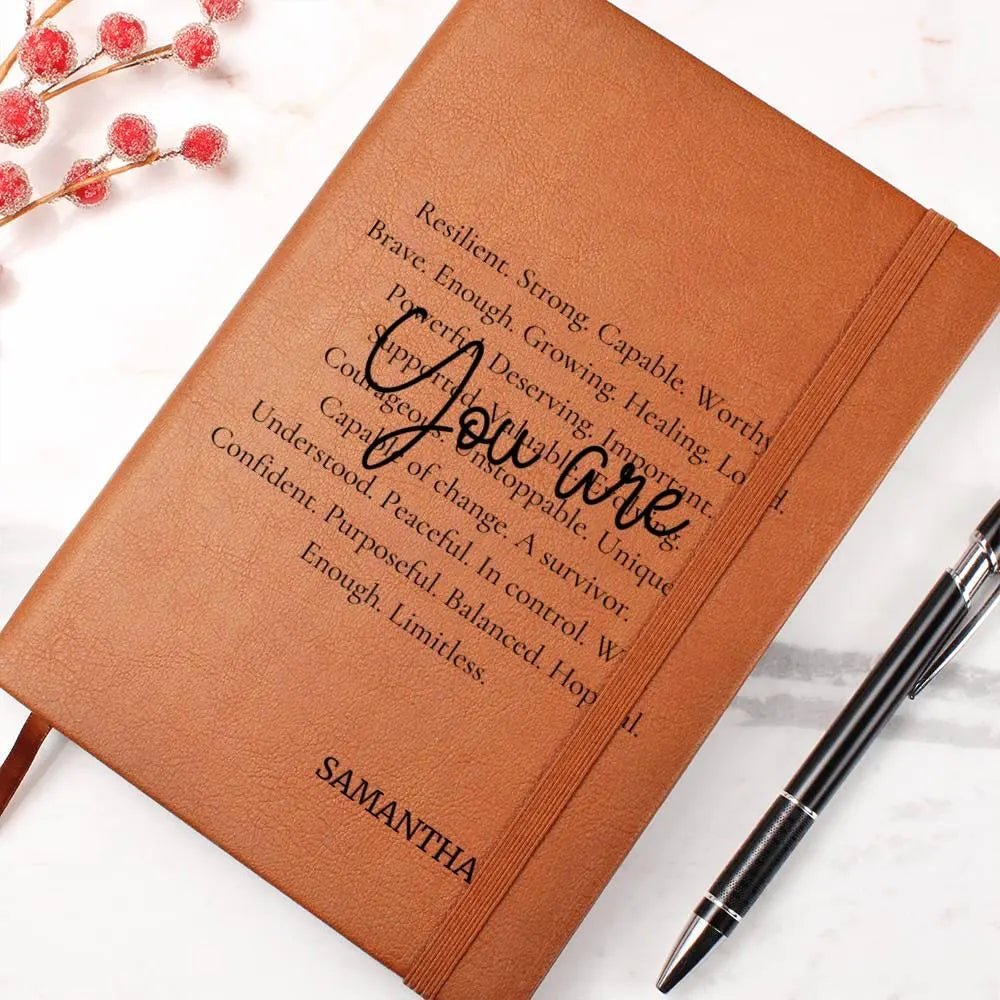 Resilient. Strong. Capable. Worthy
Brave. Enough. Growing. Healing.
Powerful. Deserving. Important.
Supported. Valuable.
You are
Courageous. Unstoppable. Unique
Capable of change. A survivor.
Understood. Peaceful. In control.
Confident. Purposeful. Balanced.
Enough. Limitless.
SAMANTHA